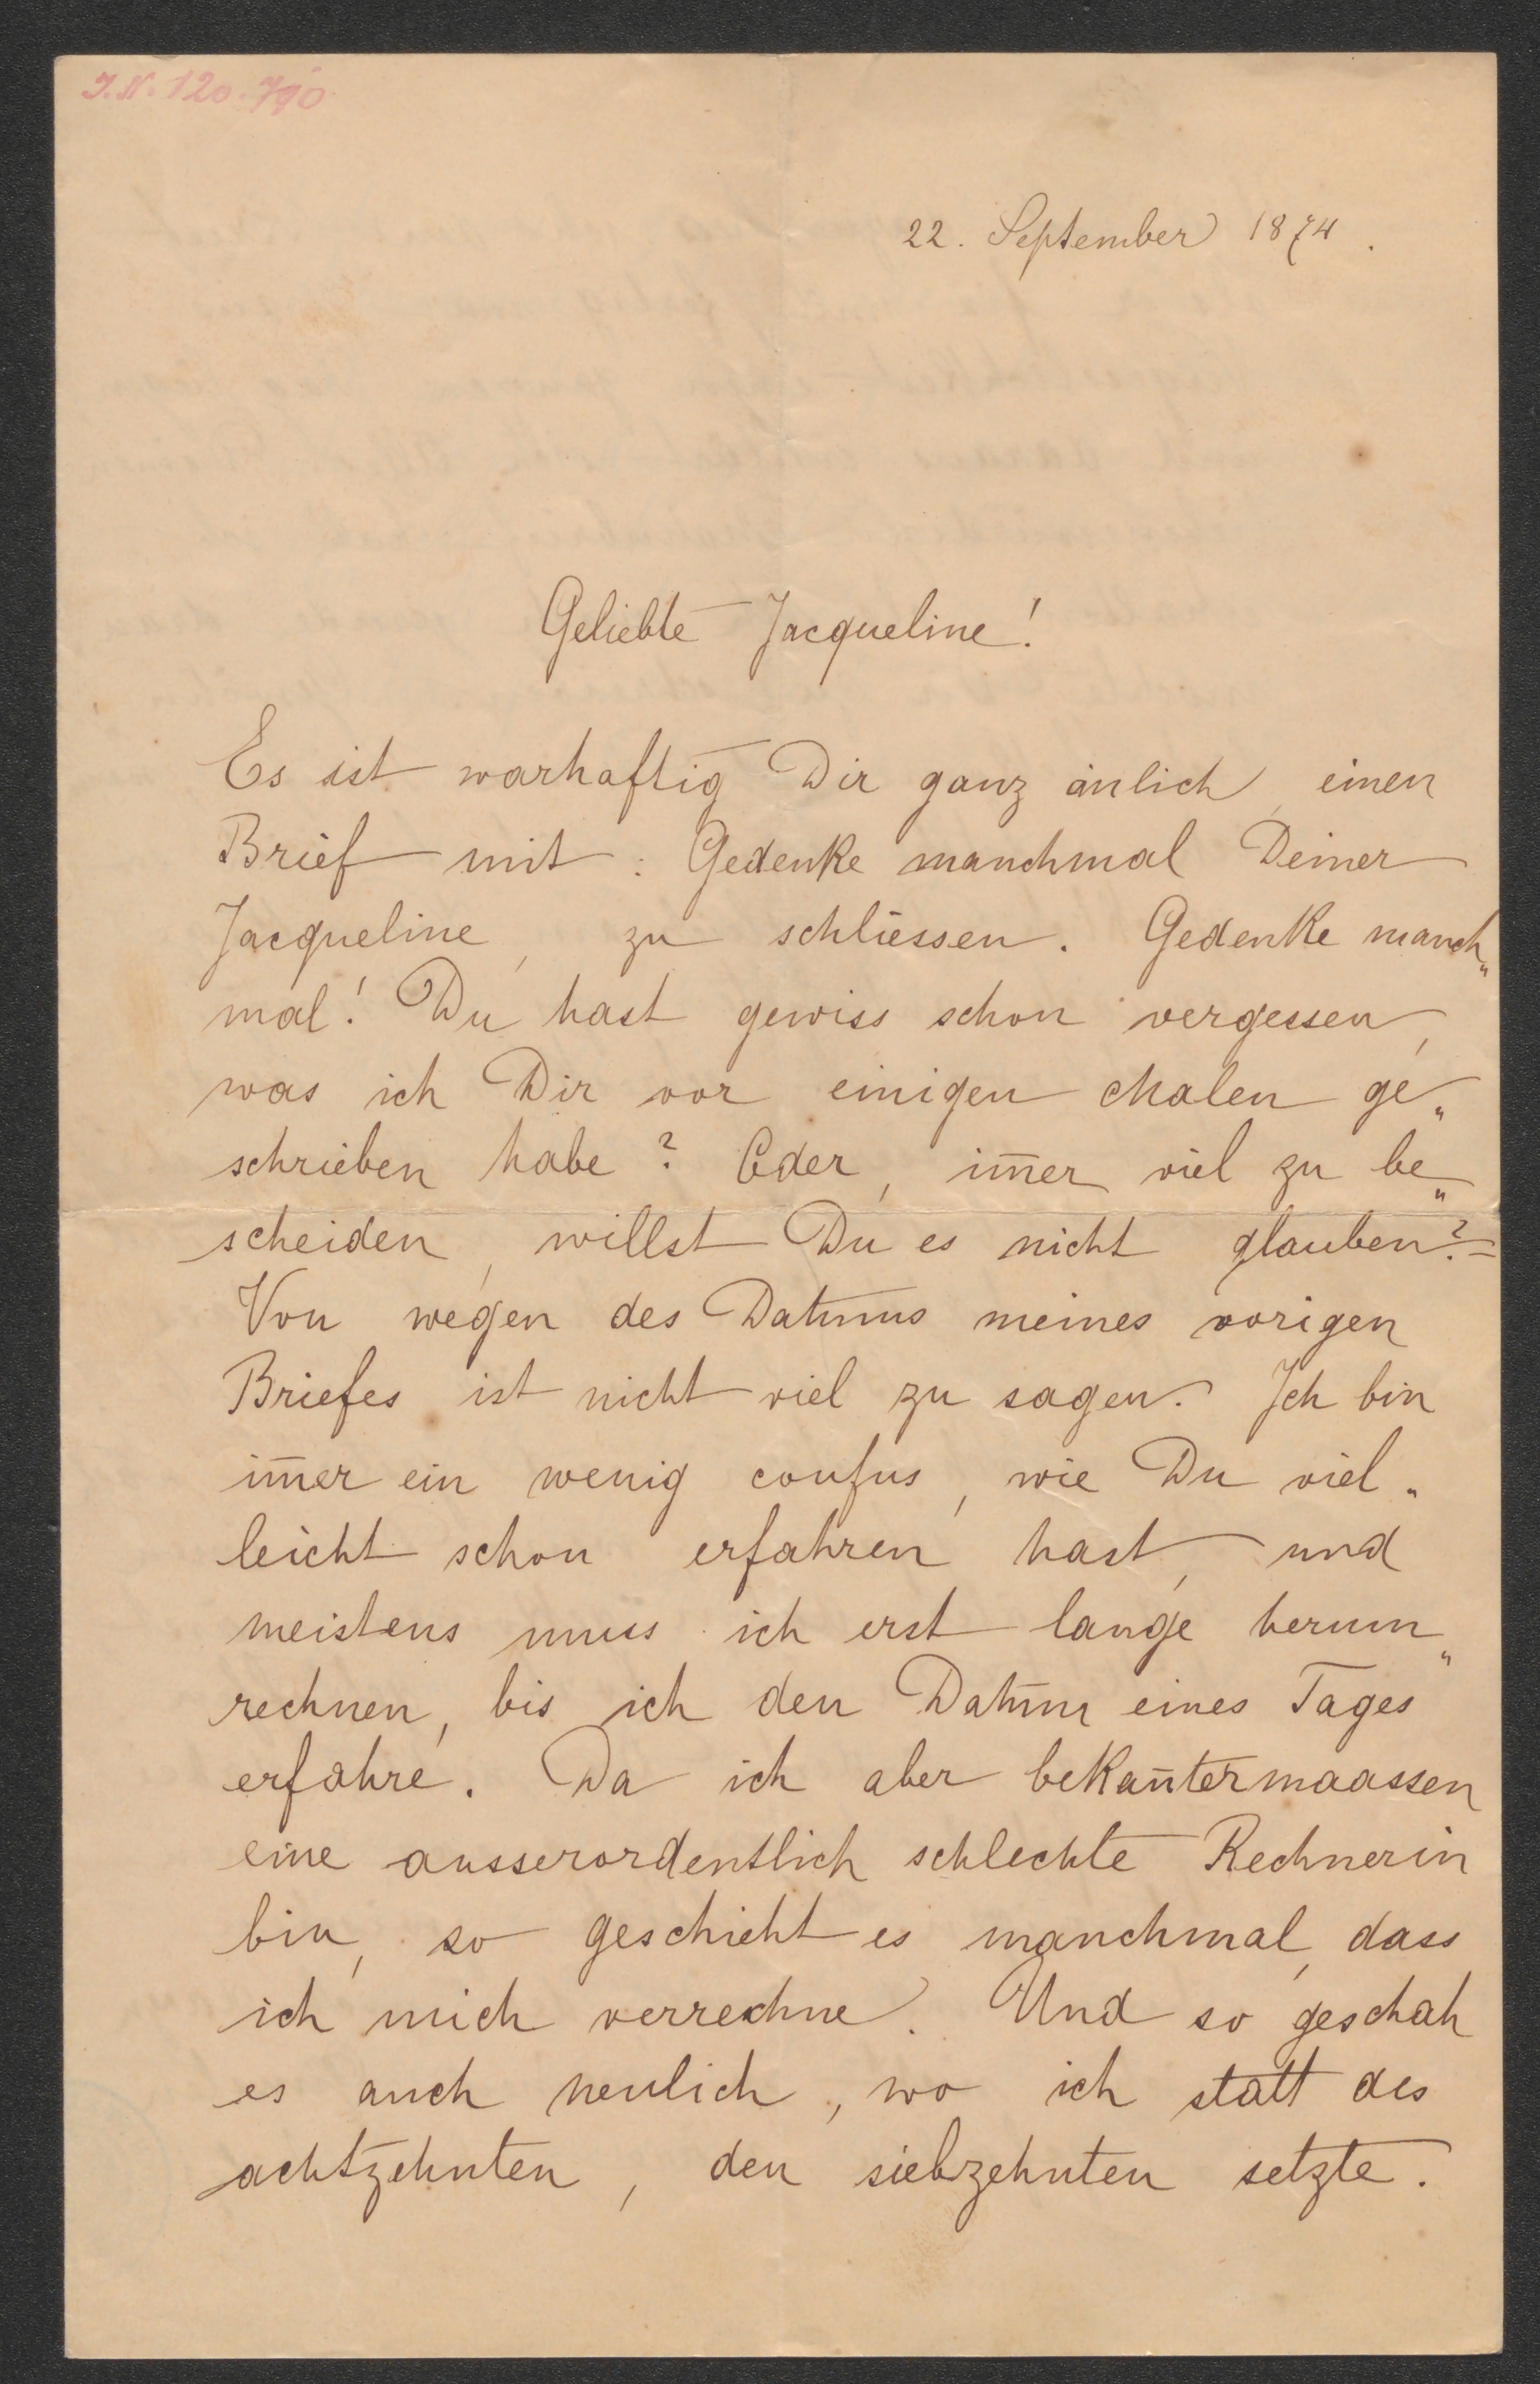 J.N. 120.790
22. September 1874.
Geliebte Jacqueline!
Es ist warhaftig Dir ganz änlich, einen
Brief mit: Gedenke manchmal Deiner
Jacqueline, zu schliessen. Gedenke manch„
mal! Du hast gewiss schon vergessen,
was ich Dir vor einigen Malen ge„
schrieben habe? Oder, im̄er viel zu be„
scheiden, willst Du es nicht glauben? =
Von wegen des Datums meines vorigen
Briefes ist nicht viel zu sagen. Ich bin
im̄er ein wenig confus, wie Du viel„
leicht schon erfahren hast, und
meistens muss ich erst lange herum„
rechnen, bis ich den Datum eines Tages
erfahre. Da ich aber bekan̄termaassen
eine ausserordentlich schlechte Rechnerin
bin, so geschieht es manchmal, dass
ich mich verrechne. Und so geschah
es auch neulich, wo ich statt des
achtzehnten, den siebzehnten setzte.